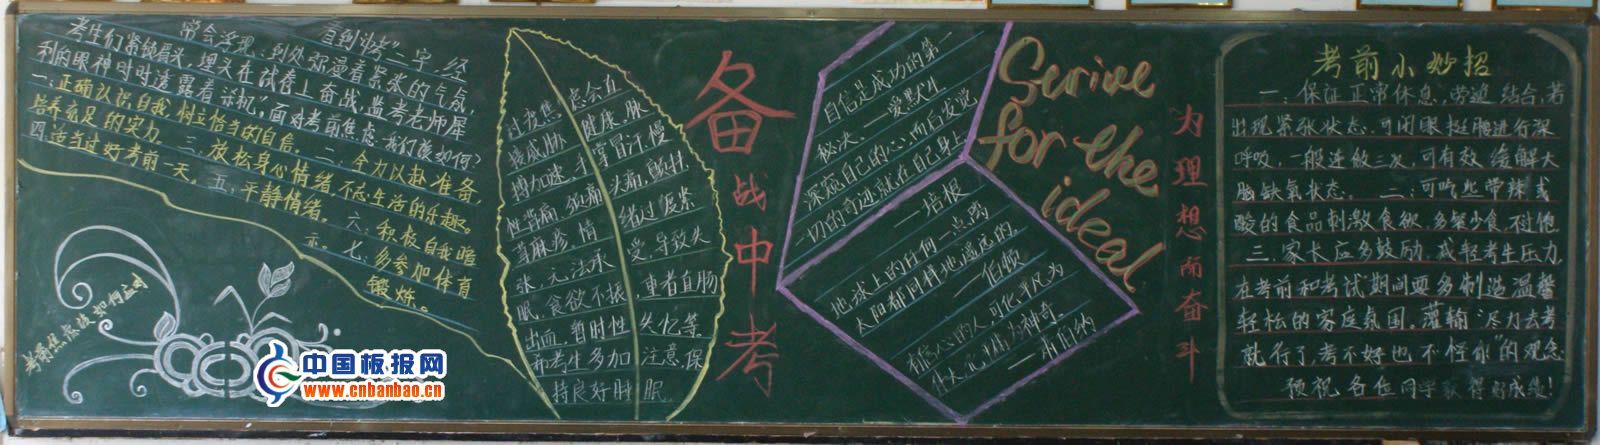 看到"中考"二字,经
常会浮现:到处弥漫着紧张的气氛,
考生们紧锁眉头,埋头在试卷上奋战,监考老师犀
利的眼神时时透露着"杀机",面对考前焦虑,我们该如何?
一:正确认识自我,树立恰当的自信。二:全力以赴准备,
培养充足的实力。三:放松身心情绪,不忘生活的乐趣。
四:适当过好考前一天。五:平静情绪。六:积极自我暗
示。七:多参加体育
锻炼。
考前焦虑该如何应对
过抗焦虑会自
接威胁健康、脉
搏加速、手掌冒汗、慢
性背痛、颈痛、头痛、颤抖、
荨麻疹。情绪过度紧
张、无法承受,导致头
眠、食欲不振,患者直肠
出血,暂时性失忆等。
希考生多加注意,保
持良好睡眠
备战中考
自信是成功的第一
秘决。——爱默生
深窥自己的心,而后发觉
一切的奇迹就在自己身上
——培根
地球上的任何一点离
太阳都同样地遥远的。
——伯顿
有信心的人,可化平凡为
伟大,化平庸为神奇。
——萧伯纳
Scrive
for the
ideal
为理想而奋斗
考前小妙招
一:保证正常休息,劳逸结合,若
出现紧张状态,可闭眼挺腰进行深
呼吸,一般连做三次,可有效缓解大
脑缺氧状态。二:可吃些带辣或
酸的食品刺激食欲,多餐少食,不过饱
三:家长应多鼓励,减轻考生压力,
在考前和考试期间要多制造温馨
轻松的家庭氛围。灌输"尽力去考
就行了,考不好也不怪你"的观念
预祝各位同学获得好成绩!
中国板报网
www.cnbanbao.cn